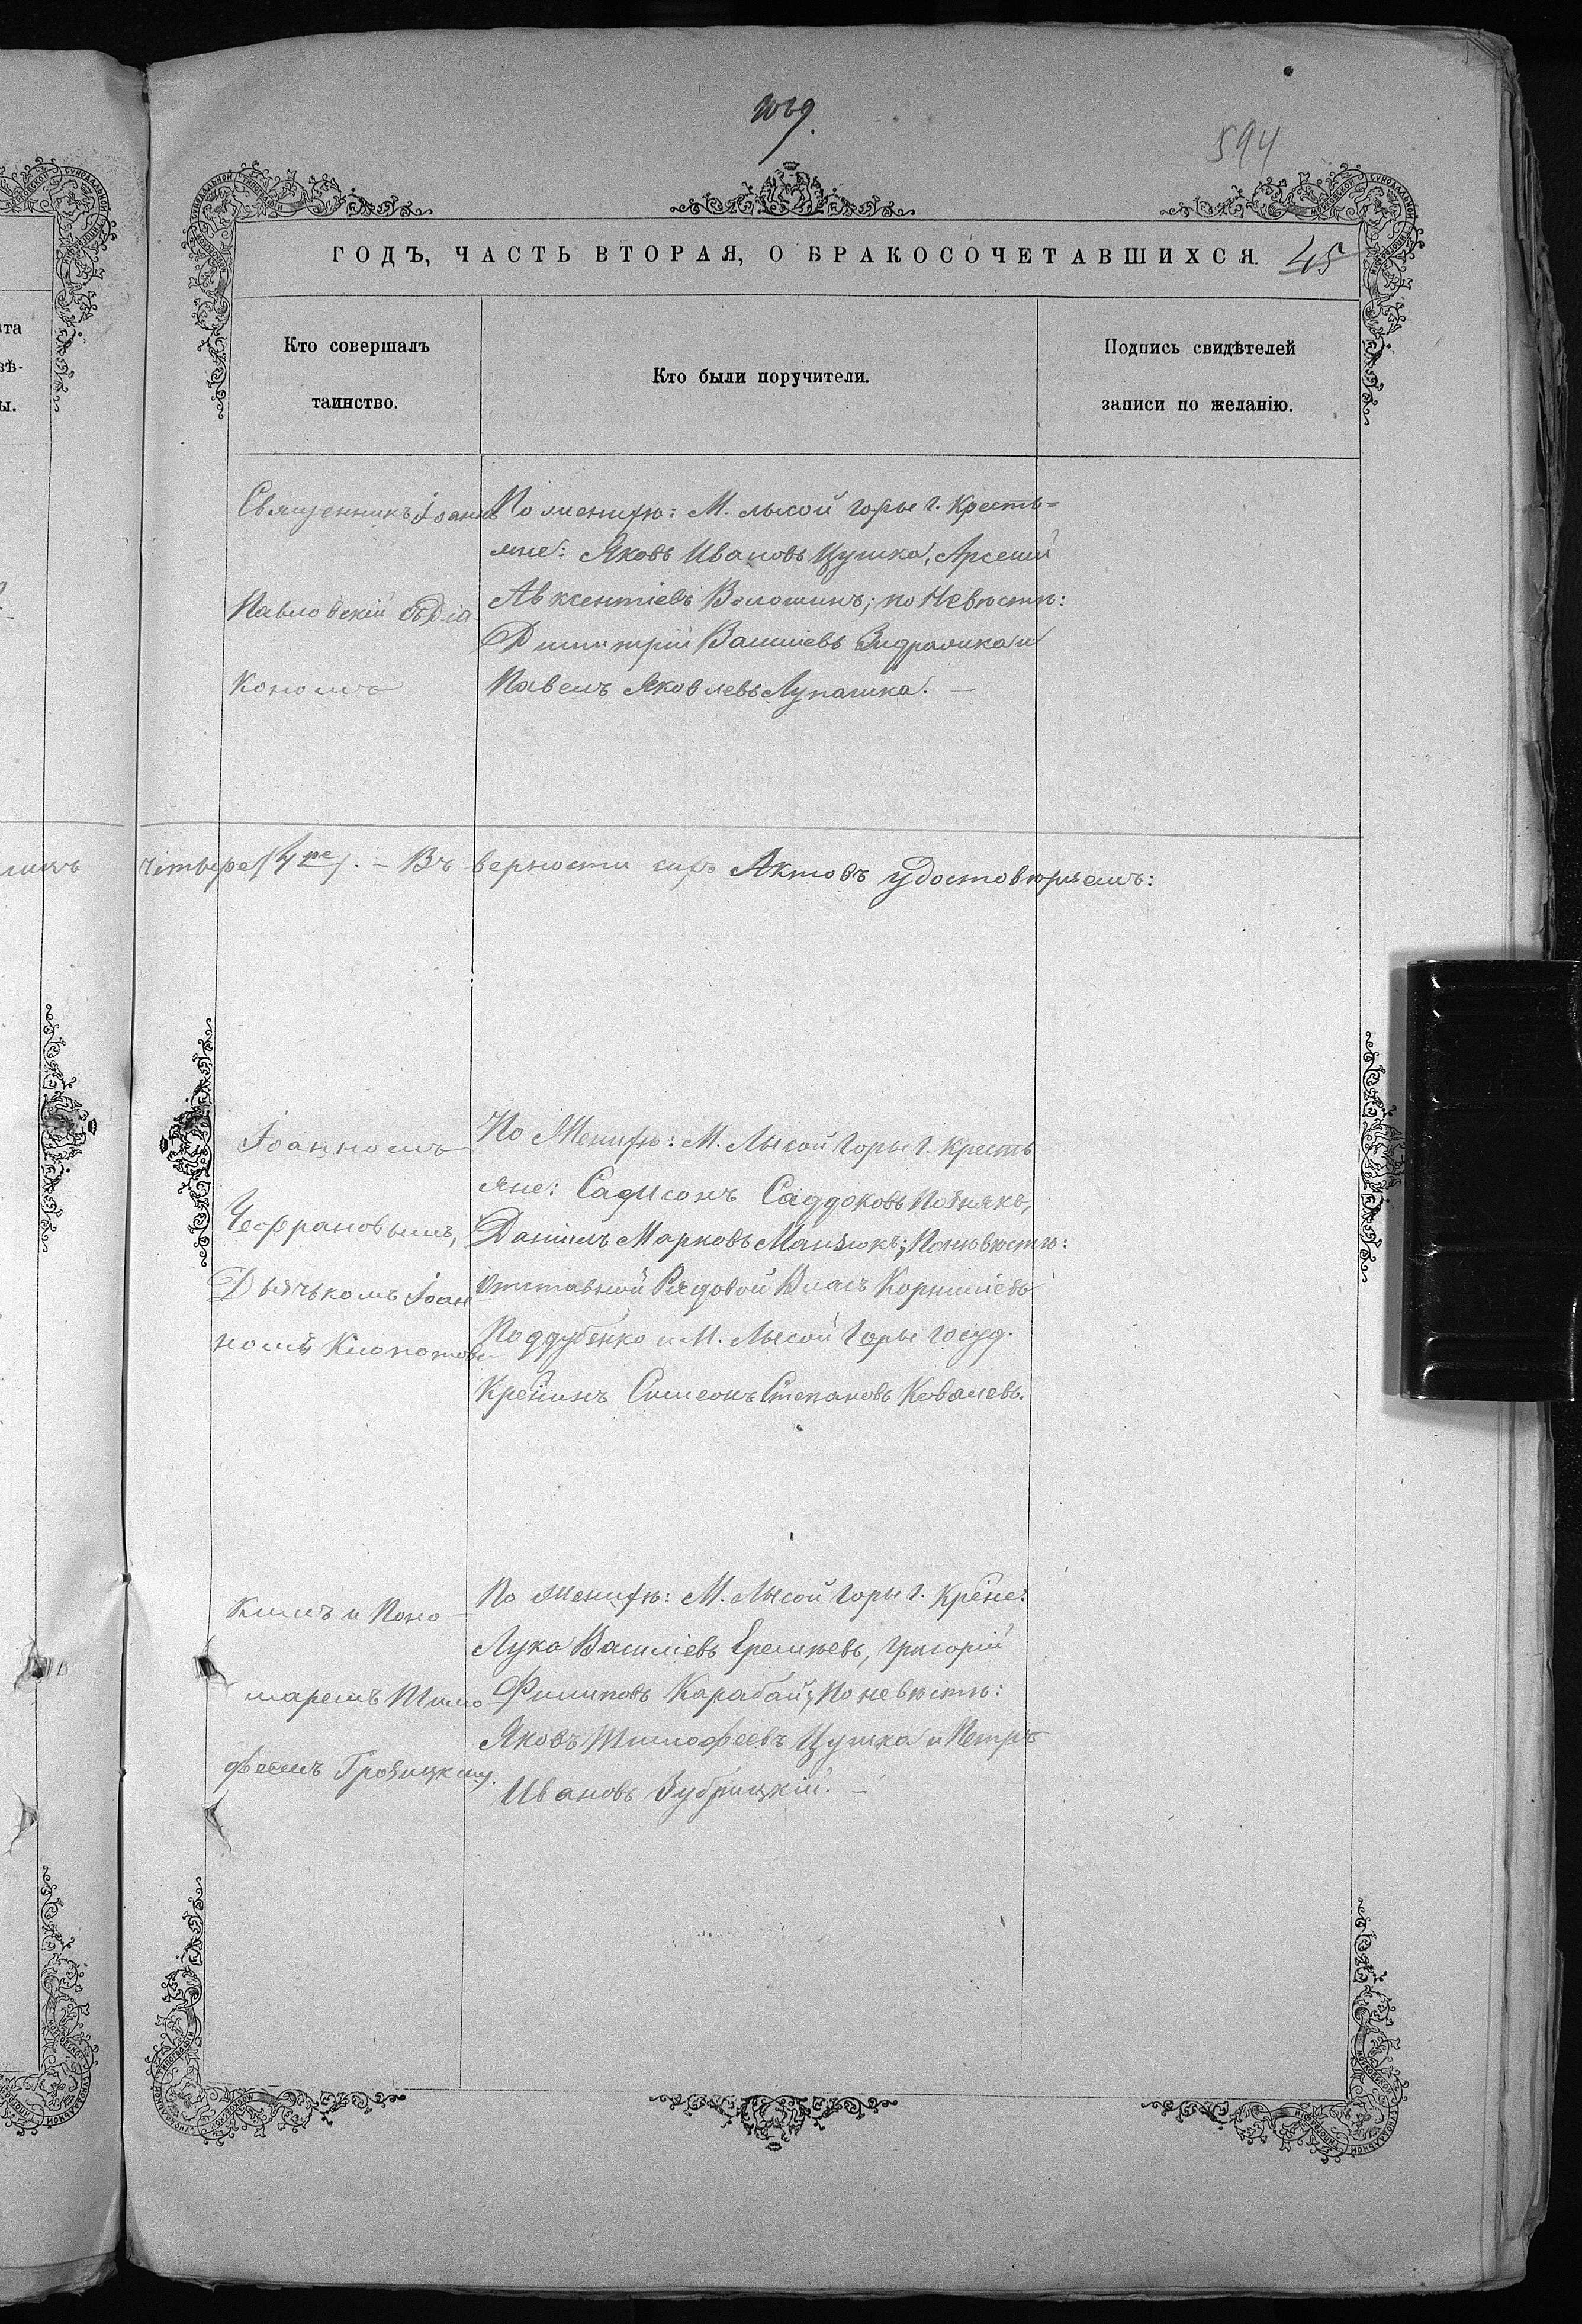 594
ГОДЪ, ЧАСТЬ ВТОРАЯ, О БРАКОСОЧЕТАВШИХСЯ. 45
Кто совершалъ
таинство.
Кто были поручители.
Подпись свидѣтелей
записи по желанію.
Священникъ Іоаннъ
Павловскій съ Діа
Кономъ
По женихѣ: М. Лысой Горы Г. Кресть=
яне: Яковъ Ивановъ Цушка, Арсеній
Авксентіевъ Волошинъ; по Невѣстѣ:
Димитрій Василіевъ и
Павелъ Яковлевъ Лупашка. –
четыре (4ре). – Въ верности сихъ Актовъ удостовѣряемъ:
Іоанномъ
Чефрановымъ,
Дьячькомъ Іоан
номъ Клопотов-
По Женихѣ: М. Лысой Горы Г. Кресть
яне: Саддоковъ Познякъ,
Даніилъ Марковъ Манзюкъ; По невѣстѣ:
Отставной Рядовой Власъ Корниліевъ
Поддубенко и М. Лысой Горы Госуд.
Кр̃нинъ Симеонъ Степановъ Ковалевъ.
Кимъ и Поно-
маремъ Тимо
феемъ Грозицкимъ.
По Женихѣ: М. Лысой Горы Г. Кр̃не:
Лука Василіевъ Еремѣевъ, Григорій
Филиповъ Карабай; По невѣстѣ:
Яковъ Тимофеевъ Цушка и Петръ
Ивановъ Зубрицкій. –